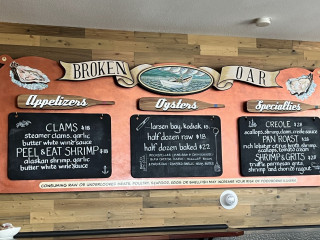 BROKEN OAR
Appetizers
CLAMS $18
steamer clams, garlic
butter white wine sauce
PEEL & EAT SHRIMP $18
alaskan shrimp, garlic
butter white wine sauce
Oysters
larsen bay, kodiak
half dozen raw $18
half dozen baked $22
Specialties
CREOLE $28
scallops, shrimp, clams, creole sauce
PAN ROAST
rich lobster citrus broth, shrimp,
scallops, tomato cream
SHRIMP & GRITS
parmesan white grits,
shrimp and chorizo ragout
CONSUMING RAW OR UNDERCOOKED MEATS, POULTRY, SEAFOOD, EGGS OR SHELLFISH MAY INCREASE YOUR RISK OF FOODBORNE ILLNESS